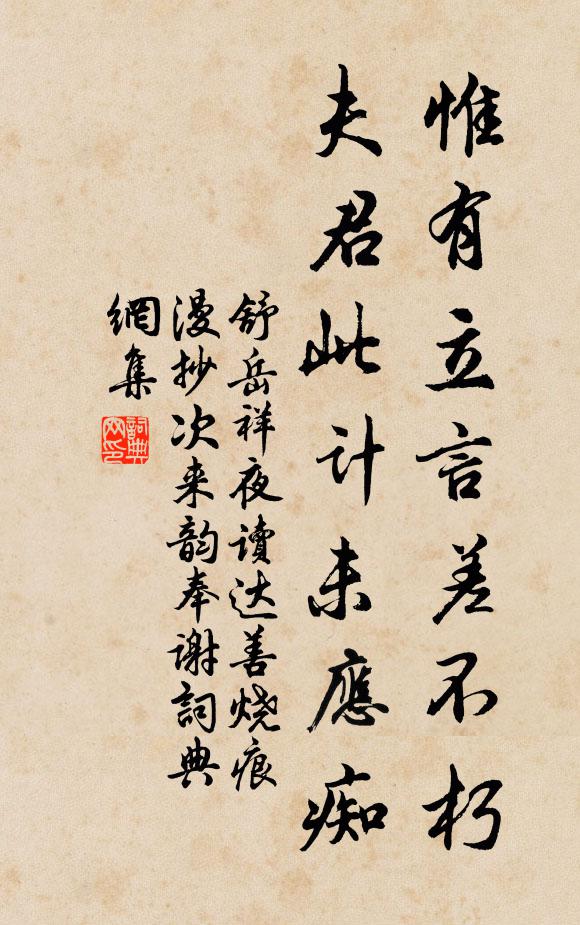 惟有立言差不朽
夫君此计未應痴
舒岳祥夜讀达善烧痕
漫抄次来韵奉谢詞典
網集
詞典
网印